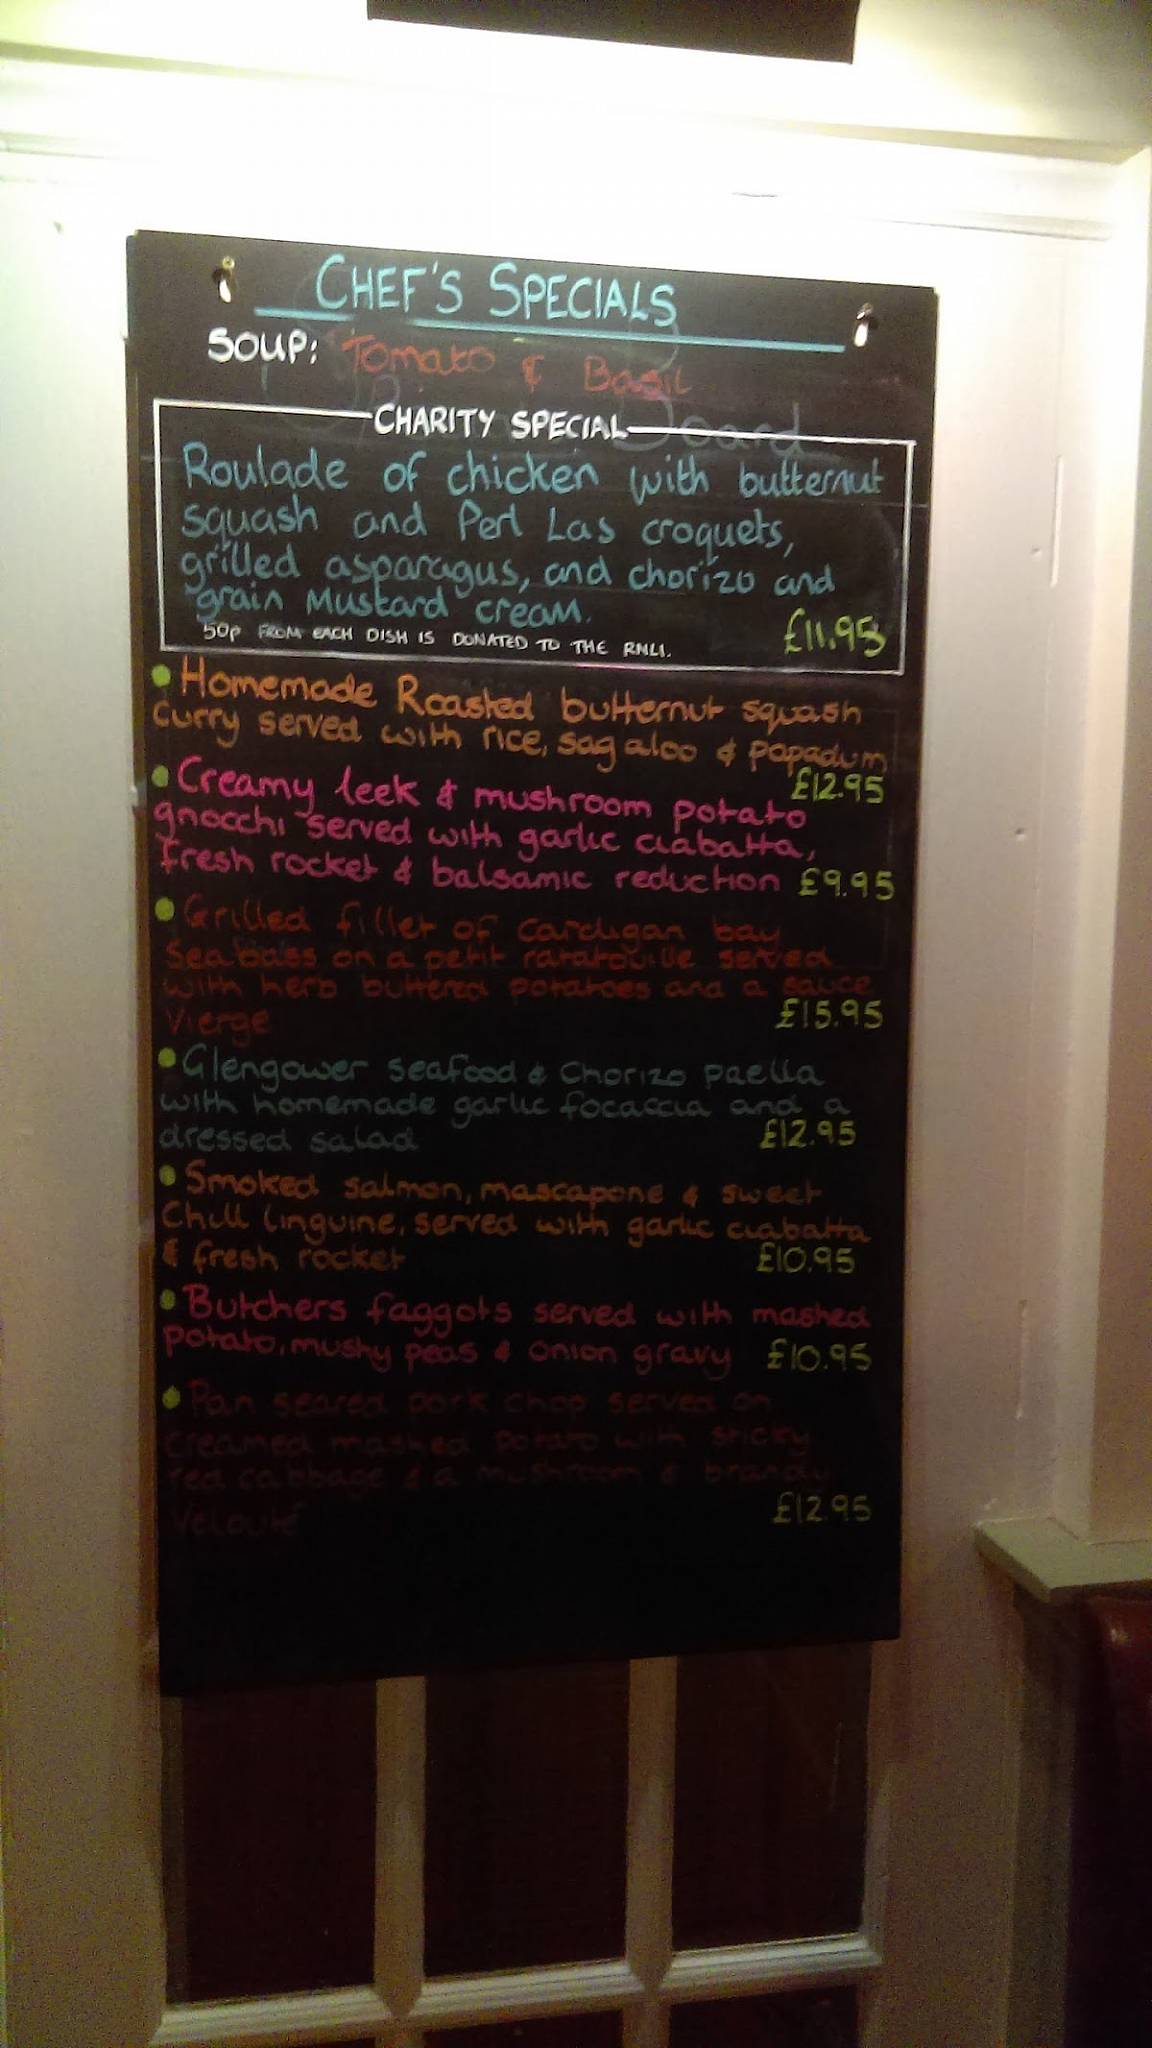 CHEF'S SPECIALS
SOUP: Tomato & Basil
CHARITY SPECIAL
Roulade of chicken with butternut
squash and Perl Las croquets,
grilled asparagus, and chorizo and
grain Mustard cream.
50p FROM EACH DISH IS DONATED TO THE RNLI. £11.95
• Homemade Roasted butternut squash
curry served with rice, sag aloo & papadum
£12.95
• Creamy leek & mushroom potato
gnocchi served with garlic ciabatta,
fresh rocket & balsamic reduction £9.95
• Grilled fillet of Cardigan bay
Seabass on a petit ratatouille served
with herb buttered potatoes and a sauce
Vierge £15.95
• Glengower seafood & Chorizo paella
with homemade garlic focaccia and a
dressed salad £12.95
• Smoked salmon, mascapone & sweet
Chilli linguine, served with garlic ciabatta
& fresh rocket £10.95
• Butchers faggots served with mashed
potato, mushy peas & onion gravy £10.95
• Pan seared pork chop served on
creamed mashed potato with sticky
red cabbage & a mushroom & brandy
Velouté £12.95